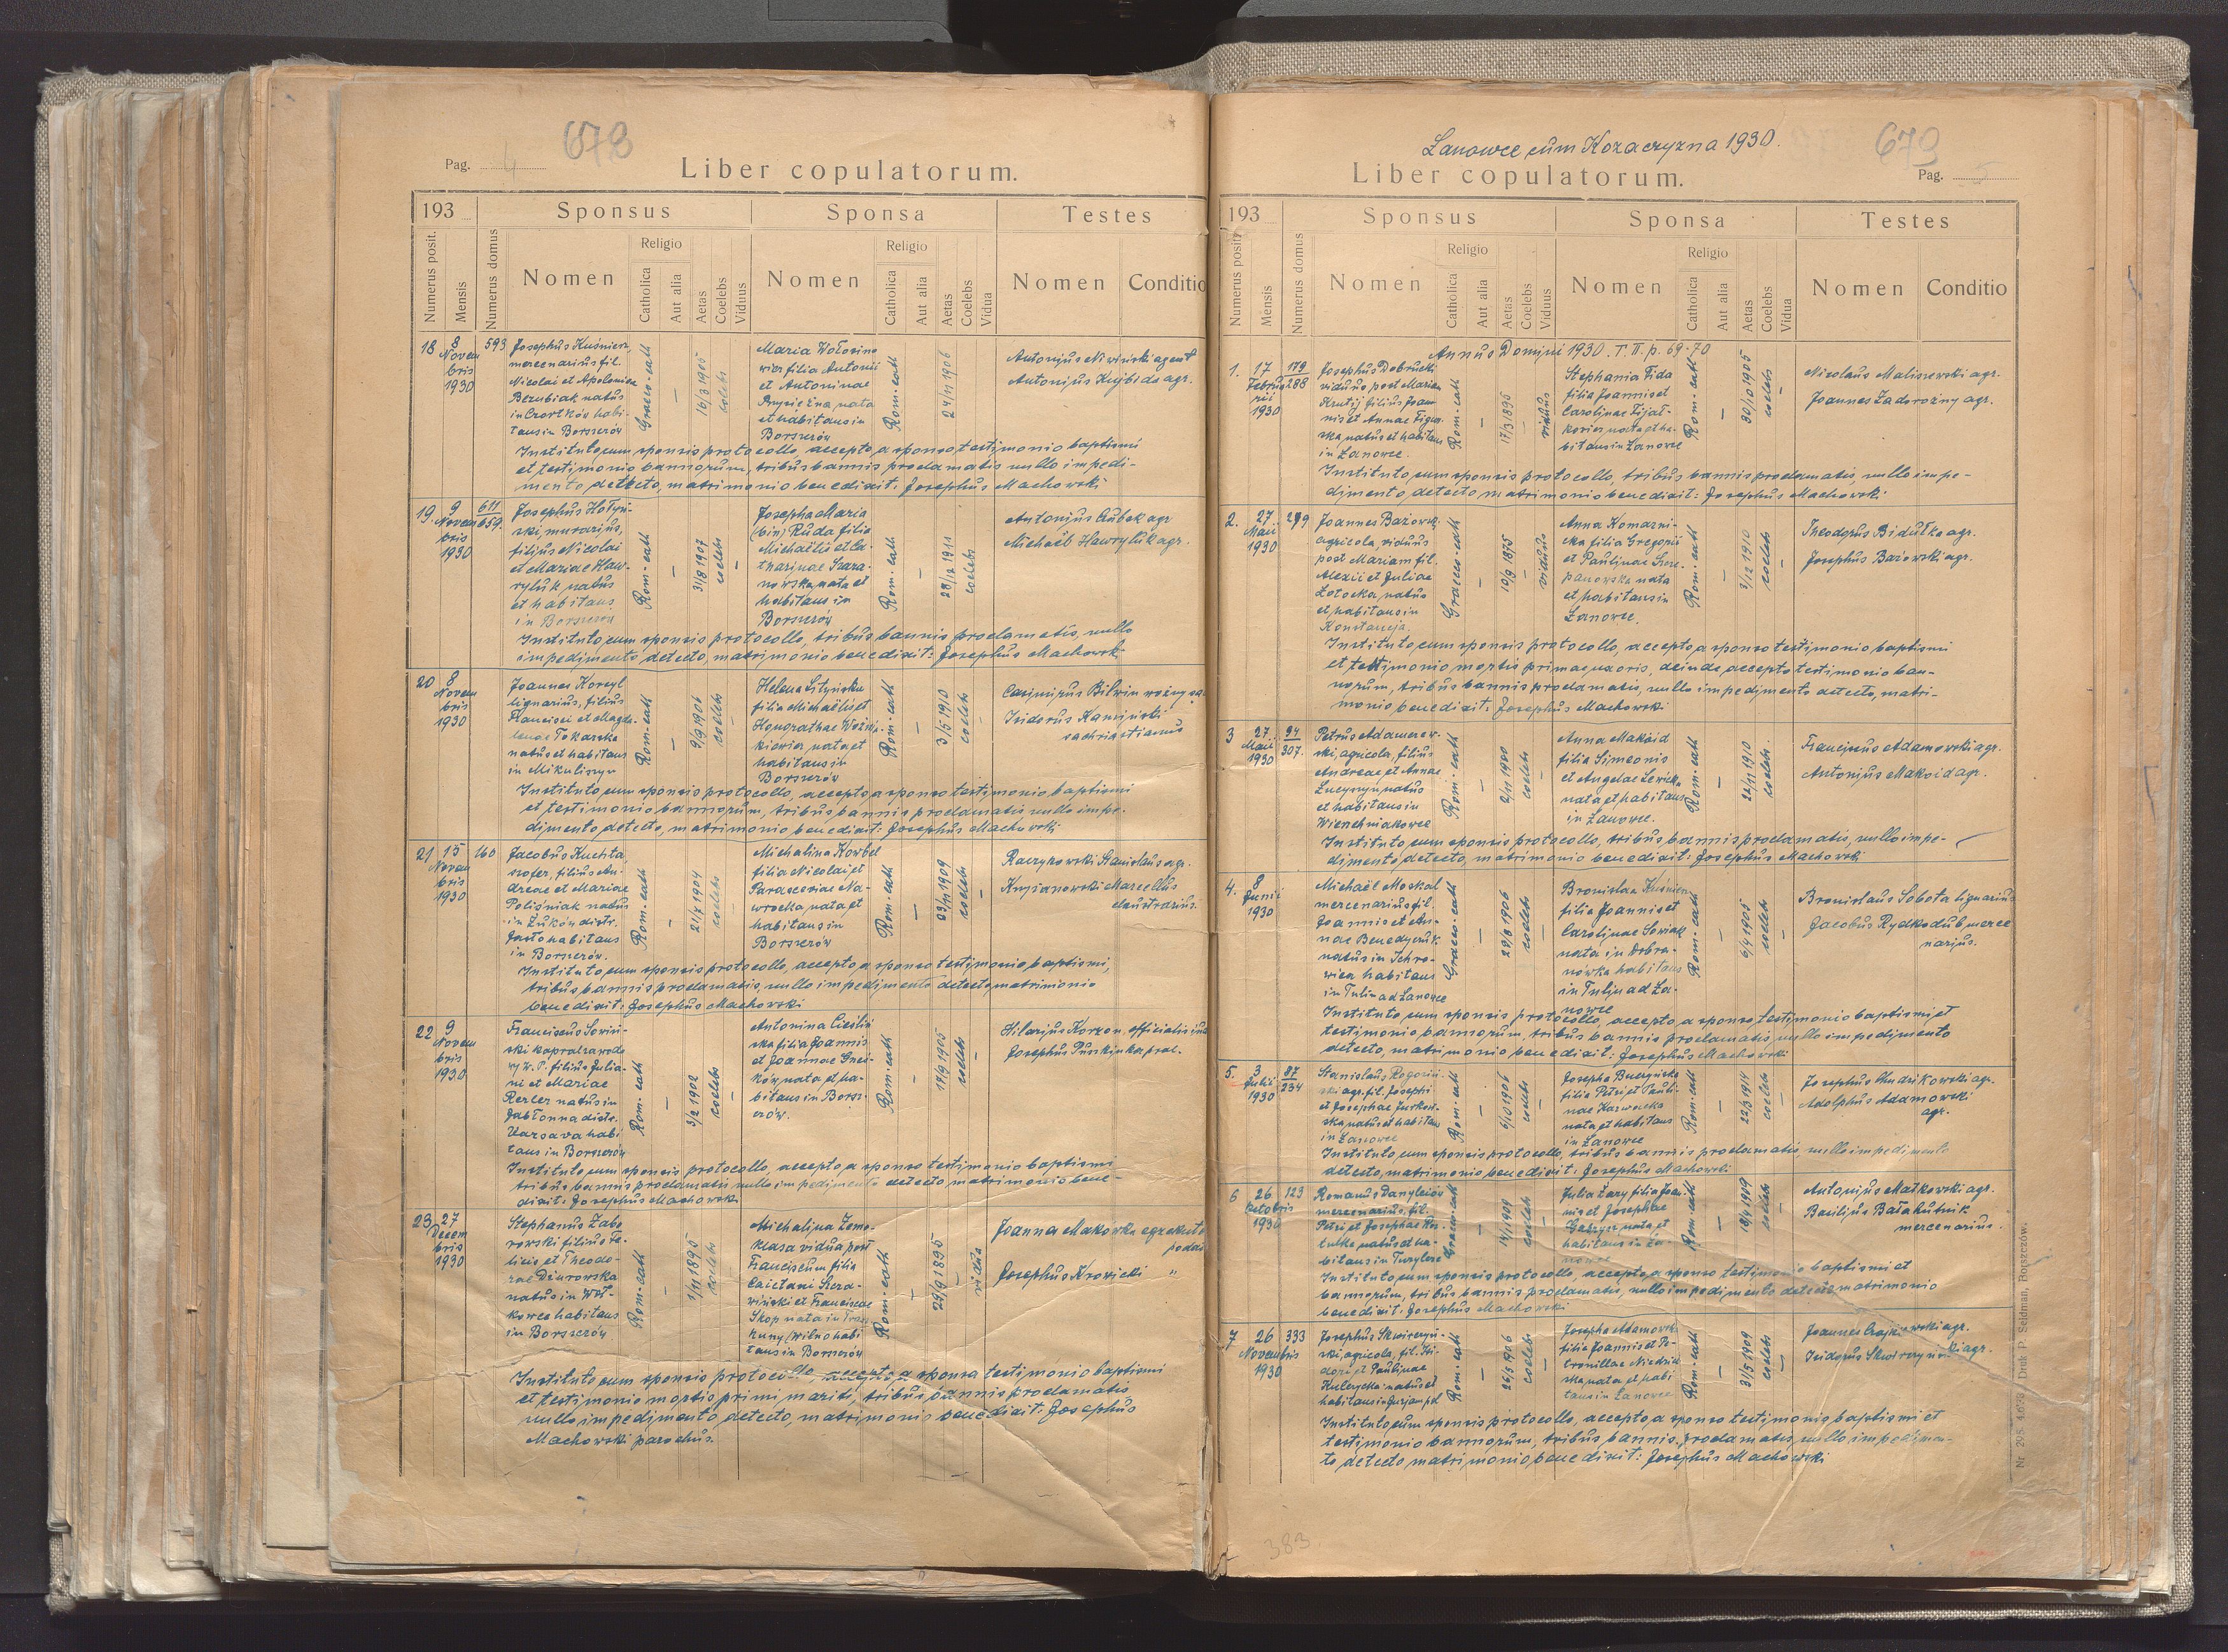 678
Pag. 4
Liber copulatorum.
193
Sponsus
Sponsa
Testes
Numerus posit.
Mensis
Numerus domus
Nomen
Religio
Catholica
Aut alia
Aetas
Coelebs
Viduus
Nomen
Religio
Catholica
Aut alia
Aetas
Coelebs
Vidua
Nomen
Conditio
18
8
Novem
bris
1930
593
Josephus Kuśnierz
mercenarius fil.
Nicolai et Apolonia
Bezubiak natus
in Czortków habi-
tans in Borszczów
Graeco-cath
—
16/3 1905
coelebs
Maria Wołosino
wicz filia Antonii
et Antoninae
nata
et habitans in
Borszczów
Rom-cath
24/11 1906
Antonius Niwiński agent
Antonius Kujbida agr.
Instituto cum sponsis protocollo, accepto a sponso testimonio baptismi
et testimonio bannorum, tribus bannis proclamatis nullo impedi-
mento detecto, matrimonio benedixit: Josephus Machowski
19.
9
Novem
bris
1930
611
659.
Josephus Hołyń-
ski, murarius,
filius Nicolai
et Mariae Haw-
ryluk natus
et habitans
in Borszczów
Rom-cath
—
31/8 1907
coelebs
—
Josepha Maria
(bin) Ruda filia
Michaëlis et Ca-
tharinae Szara-
nowska nata et
habitans in
Borszczów
Rom-cath
—
28/12 1911
coelebs
Antonius Czubak agr
Michaël Hawryluk agr.
Instituto cum sponsis protocollo, tribus bannis proclamatis, nullo
impedimento detecto, matrimonio benedixit: Josephus Machowski
20
8
Novem
bris
1930
Joannes Korzyl
lignarius, filius
Francisci et Magda-
lenae Tokarska
natus et habitans
in Mikulińzyn
Rom-cath
—
9/9 1906
coelebs
Helena Lityńska
filia Michaëlis et
Honorathae Woźni-
kiewicz nata et
habitans in
Borszczów
Rom-cath
—
3/5 1910
coelebs
Casimirus Bilwin woźny są
Isidorus Kamiński
sachristianus
Instituto cum sponsis protocollo, accepto a sponso testimonio baptismi
et testimonio bannorum, tribus bannis proclamatis nullo impe-
dimento detecto, matrimonio benedixit: Josephus Machowski
21
15
Novem
bris
1930
160
Jacobus Kuchta
szofer, filius An-
dreae et Mariae
Poliśniak natus
in Żuków distr.
Jasło habitans
in Borszczów.
Rom-cath
—
21/7 1904
coelebs
—
Michalina Korbel
filia Nicolai et
Parasceviae Na-
wrocka nata et
habitans in
Borszczów
Rom-cath
—
23/11 1909
coelebs
—
Raczykowski Stanislaus agr.
Krysianowski Marcellus
claustrarius.
Instituto cum sponsis protocollo, accepto a sponso testimonio baptismi,
tribus bannis proclamatis, nullo impedimento detecto matrimonio
benedixit: Josephus Machowski
22
9
Novem
bris
1930
Franciscus Sowiń-
ski kapral zawodo
wy W.P. filius Julia-
ni et Mariae
Rerler natus in
Jabłonna distr.
Varsava habi
tans in Borszczów
Rom-cath
—
3/2 1902
coelebs
—
Antonina Cieśliń
ska filia Joannis
et Joannae Gnei-
ków nata et ha-
bitans in Borsz-
czów.
Rom-cath
—
17/9 1905
coelebs
—
Hilarius Korzon, officialis
Josephus Puszkin kapral.
Instituto cum sponsis protocollo, accepto a sponso testimonio baptismi
tribus bannis proclamatis nullo impedimento detecto matrimonio bene-
dixit: Josephus Machowski
23
27
Decem
bris
1930
Stephanus Zabo
rowski filius Fe-
licis et Theodo-
rae Dżurowska
natus in Woł-
kowce habitans
in Borszczów
Rom-cath
—
1/11 1895
coelebs
Michalina Zomo-
klasa vidua post
Franciscum filia
Caietani Szera-
wiński et Franciscae
Skop nata in
kuny (Wilno habi
tans in Borszczów
Rom-cath
—
29/9 1895
—
vidua
Joanna Makówka egzekut
podat
Josephus Krowicki "
Instituto cum sponsis protocollo, accepto a sponsa testimonio baptismi
et testimonio mortis primi mariti, tribus bannis proclamatis
nullo impedimento detecto, matrimonio benedixit: Josephus
Machowski parochus.
Łanowce cum Kozaczyzna 1930.
679
Liber copulatorum.
Pag. 5
193
Sponsus
Sponsa
Testes
Numerus posit.
Mensis
Numerus domus
Nomen
Religio
Catholica
Aut alia
Aetas
Coelebs
Viduus
Nomen
Religio
Catholica
Aut alia
Aetas
Coelebs
Vidua
Nomen
Conditio
Annus Domini 1930. T. II. p. 69-70
1.
17
Februa
rii
1930
179
288
Josephus Dobrucki
viduus post Mariam
Krutij filius Joan
nis et Annae Figur-
ska natus et habitans
in Łanowce.
Rom-cath
—
17/3 1895
—
viduus
Stephania Fida
filia Joannis et
Carolinae Fijał-
kowicz nata et ha-
bitans in Łanowce
Rom-cath
—
30/10 1905
coelebs
—
Nicolaus Maliszewski agr.
Joannes Zadorożny agr.
Instituto cum sponsis protocollo, tribus bannis proclamatis, nullo impe-
dimento detecto matrimonio benedixit: Josephus Machowski
2.
27.
Maii
1930
279
Joannes Bażowski
agricola, viduus
post Mariam fil.
Alexii et Juliae
Łotocka natus
et habitans in
Konstancja.
Graeco-cath
—
10/9 1875
—
viduus
Anna Komarni-
cka filia Gregorii
et Paulinae Szcze-
panowska nata
et habitans in
Łanowce.
Rom-cath
—
3/12 1910
coelebs
—
Theodorus Bidulka agr.
Josephus Bażowski agr.
Instituto cum sponsis protocollo, accepto a sponso testimonio baptismi
et testimonio mortis primae uxoris, deinde accepto testimonio ban-
norum, tribus bannis proclamatis, nullo impedimento detecto, matri-
monio benedixit: Josephus Machowski
3
27.
Maii
1930
94
307.
Petrus Adamczew-
ski, agricola, filius
Andreae et Annae
natus
et habitans in
Wierzchniakowce
Rom-cath
—
2/11 1900
coelebs
—
Anna Makoid
filia Simeonis
et Angelae Lewicka
nata et habitans
in Łanowce.
Rom-cath
—
24/11 1910
coelebs
—
Franciscus Adamowski agr.
Antonius Makoid agr.
Instituto cum sponsis protocollo, tribus bannis proclamatis, nullo impe-
dimento detecto, matrimonio benedixit: Josephus Machowski
4.
8
Junii
1930
Michaël Moskal
mercenarius fil.
Joannis et An-
nae Benedyczuk
natus in Ichro-
wica habitans
in Tulin ad Łanowce
Graeco-cath
—
29/8 1906
coelebs
—
Bronislaa Kuśnierz
filia Joannis et
Carolinae Sowiak
nata in Dobra-
nówka habitans
in Tulin ad Ła-
nowce
Rom-cath
—
6/4 1905
coelebs
—
Bronislaus Sobota lignarius
Jacobus Rydkodub merce
narius.
Instituto cum sponsis protocollo, accepto a sponso testimonio baptismi et
testimonio bannorum, tribus bannis proclamatis, nullo impedimento
detecto, matrimonio benedixit: Josephus Machowski
5.
3
Julii
1930
87
234
Stanislaus Rogoziń-
ski agr. fil. Josephi
et Josephae Jurkow-
ska natus et habitans
in Łanowce
Rom-cath
—
6/10 1906
coelebs
—
Josepha Buczyńska
filia Petri et Pauli-
nae Karwacka
nata et habitans
in Łanowce
Rom-cath
—
22/3 1914
coelebs
—
Josephus Chudzikowski agr.
Adolphus Adamowski
agr.
Instituto cum sponsis protocollo, tribus bannis proclamatis, nullo impedimento
detecto, matrimonio benedixit: Josephus Machowski
6
26
Octobris
1930
123
Romanus Danyleiów
mercenarius, fil.
Petri et Josephae Kos-
tulka natus et ha-
bitans in Turylcze
Graeco-cath
—
14/1 1909
coelebs
—
Julia Zary filia Joan-
nis et Josephae
nata et
habitans in Ła-
nowce
Rom-cath
—
18/4 1909
coelebs
—
Antonius Matkowski agr.
Basilius Bałakutnik
mercenarius.
Instituto cum sponsis protocollo, accepto a sponso testimonio baptismi et
bannorum, tribus bannis proclamatis, nullo impedimento detecto matrimonio
benedixit: Josephus Machowski
7
26
Novembris
1930
333
Josephus Skwirczyń-
ski agricola, fil. Isi-
dori et Paulinae
Kulczycka natus et
habitans in
Rom-cath
—
26/3 1906
coelebs
—
Josepha Adamowska
filia Joannis et Pe-
tronillae Niedziel-
ska nata et habi
tans in Łanowce
Rom-cath
—
31/5 1909
coelebs
—
Joannes agr.
Isidorus Skwirczyński agr.
Instituto cum sponsis protocollo, accepto a sponso testimonio baptismi et
testimonio bannorum, tribus bannis proclamatis, nullo impedimen-
to detecto matrimonio benedixit: Josephus Machowski
Druk P. Seidman, Borszczów.
383